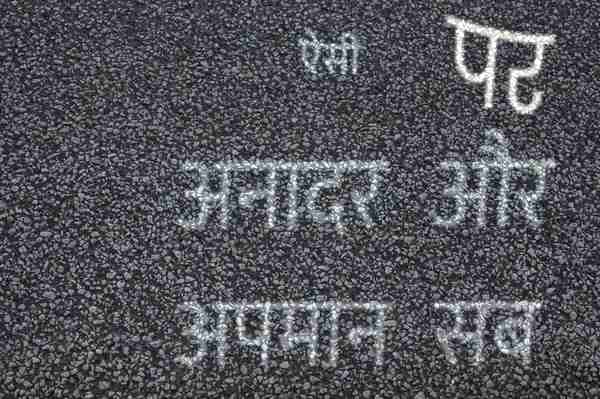 ऐसी पर
अनादर और
अपमान सब